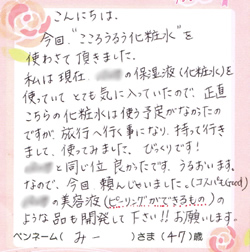 こんにちは。
今回、"こころうるう化粧水"を
使わさて頂きました。
私は現在、の保湿液(化粧水)を
使っていてとても気に入っていたので、正直
こちらの化粧水は使う予定がなかったの
ですが、旅行へ行く事になり、持って行き
まして、使ってみました。びっくりです!
と同じ位良かったです。うるおいます。
なので、今回頼んじゃいました。(コスパもGood)
の美容液(ピーリングができるもの)の
ような品も開発して下さい!!お願いします。
ペンネーム(みー)さま(47)歳